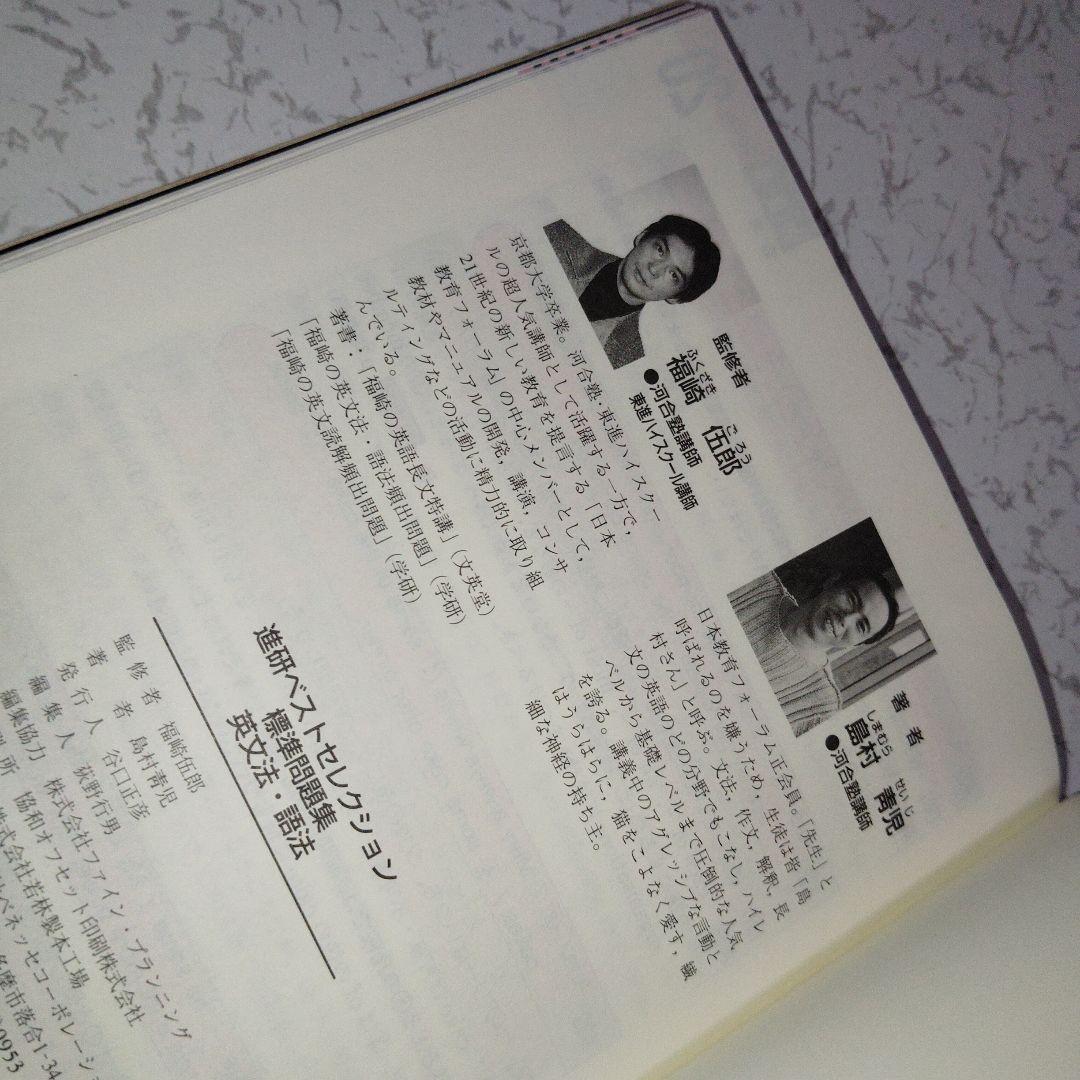 監修者
ふくざき ごろう
福崎 伍郎
●河合塾講師
東進ハイスクール講師
京都大学卒業。河合塾・東進ハイスクー
ルの超人気講師として活躍する一方で，
21世紀の新しい教育を提言する「日本
教育フォーラム」の中心メンバーとして，
教材やマニュアルの開発，講演，コンサ
ルティングなどの活動に精力的に取り組
んでいる。
著書：「福崎の英語長文特講」（文英堂）
「福崎の英文法・語法頻出問題」（学研）
「福崎の英文読解頻出問題」（学研）
著者
しまむら せいじ
島村 青児
●河合塾講師
日本教育フォーラム正会員。「先生」と
呼ばれるのを嫌うため，生徒は皆「島
村さん」と呼ぶ。文法，作文，解釈，長
文の英語のどの分野でもこなし，ハイレ
ベルから基礎レベルまで圧倒的な人気
を誇る。講義中のアグレッシブな言動と
はうらはらに，猫をこよなく愛す，繊
細な神経の持ち主。
進研ベストセレクション
標準問題集
英文法・語法
監修者 福崎伍郎
著者 島村青児
発行人 谷口正彦
編集人 荻野行男
編集協力 株式会社ファイン・プランニング
所 協和オフセット印刷株式会社
株式会社若林製本工場
ベネッセコーポレーシ
多摩市落合1-34
0953